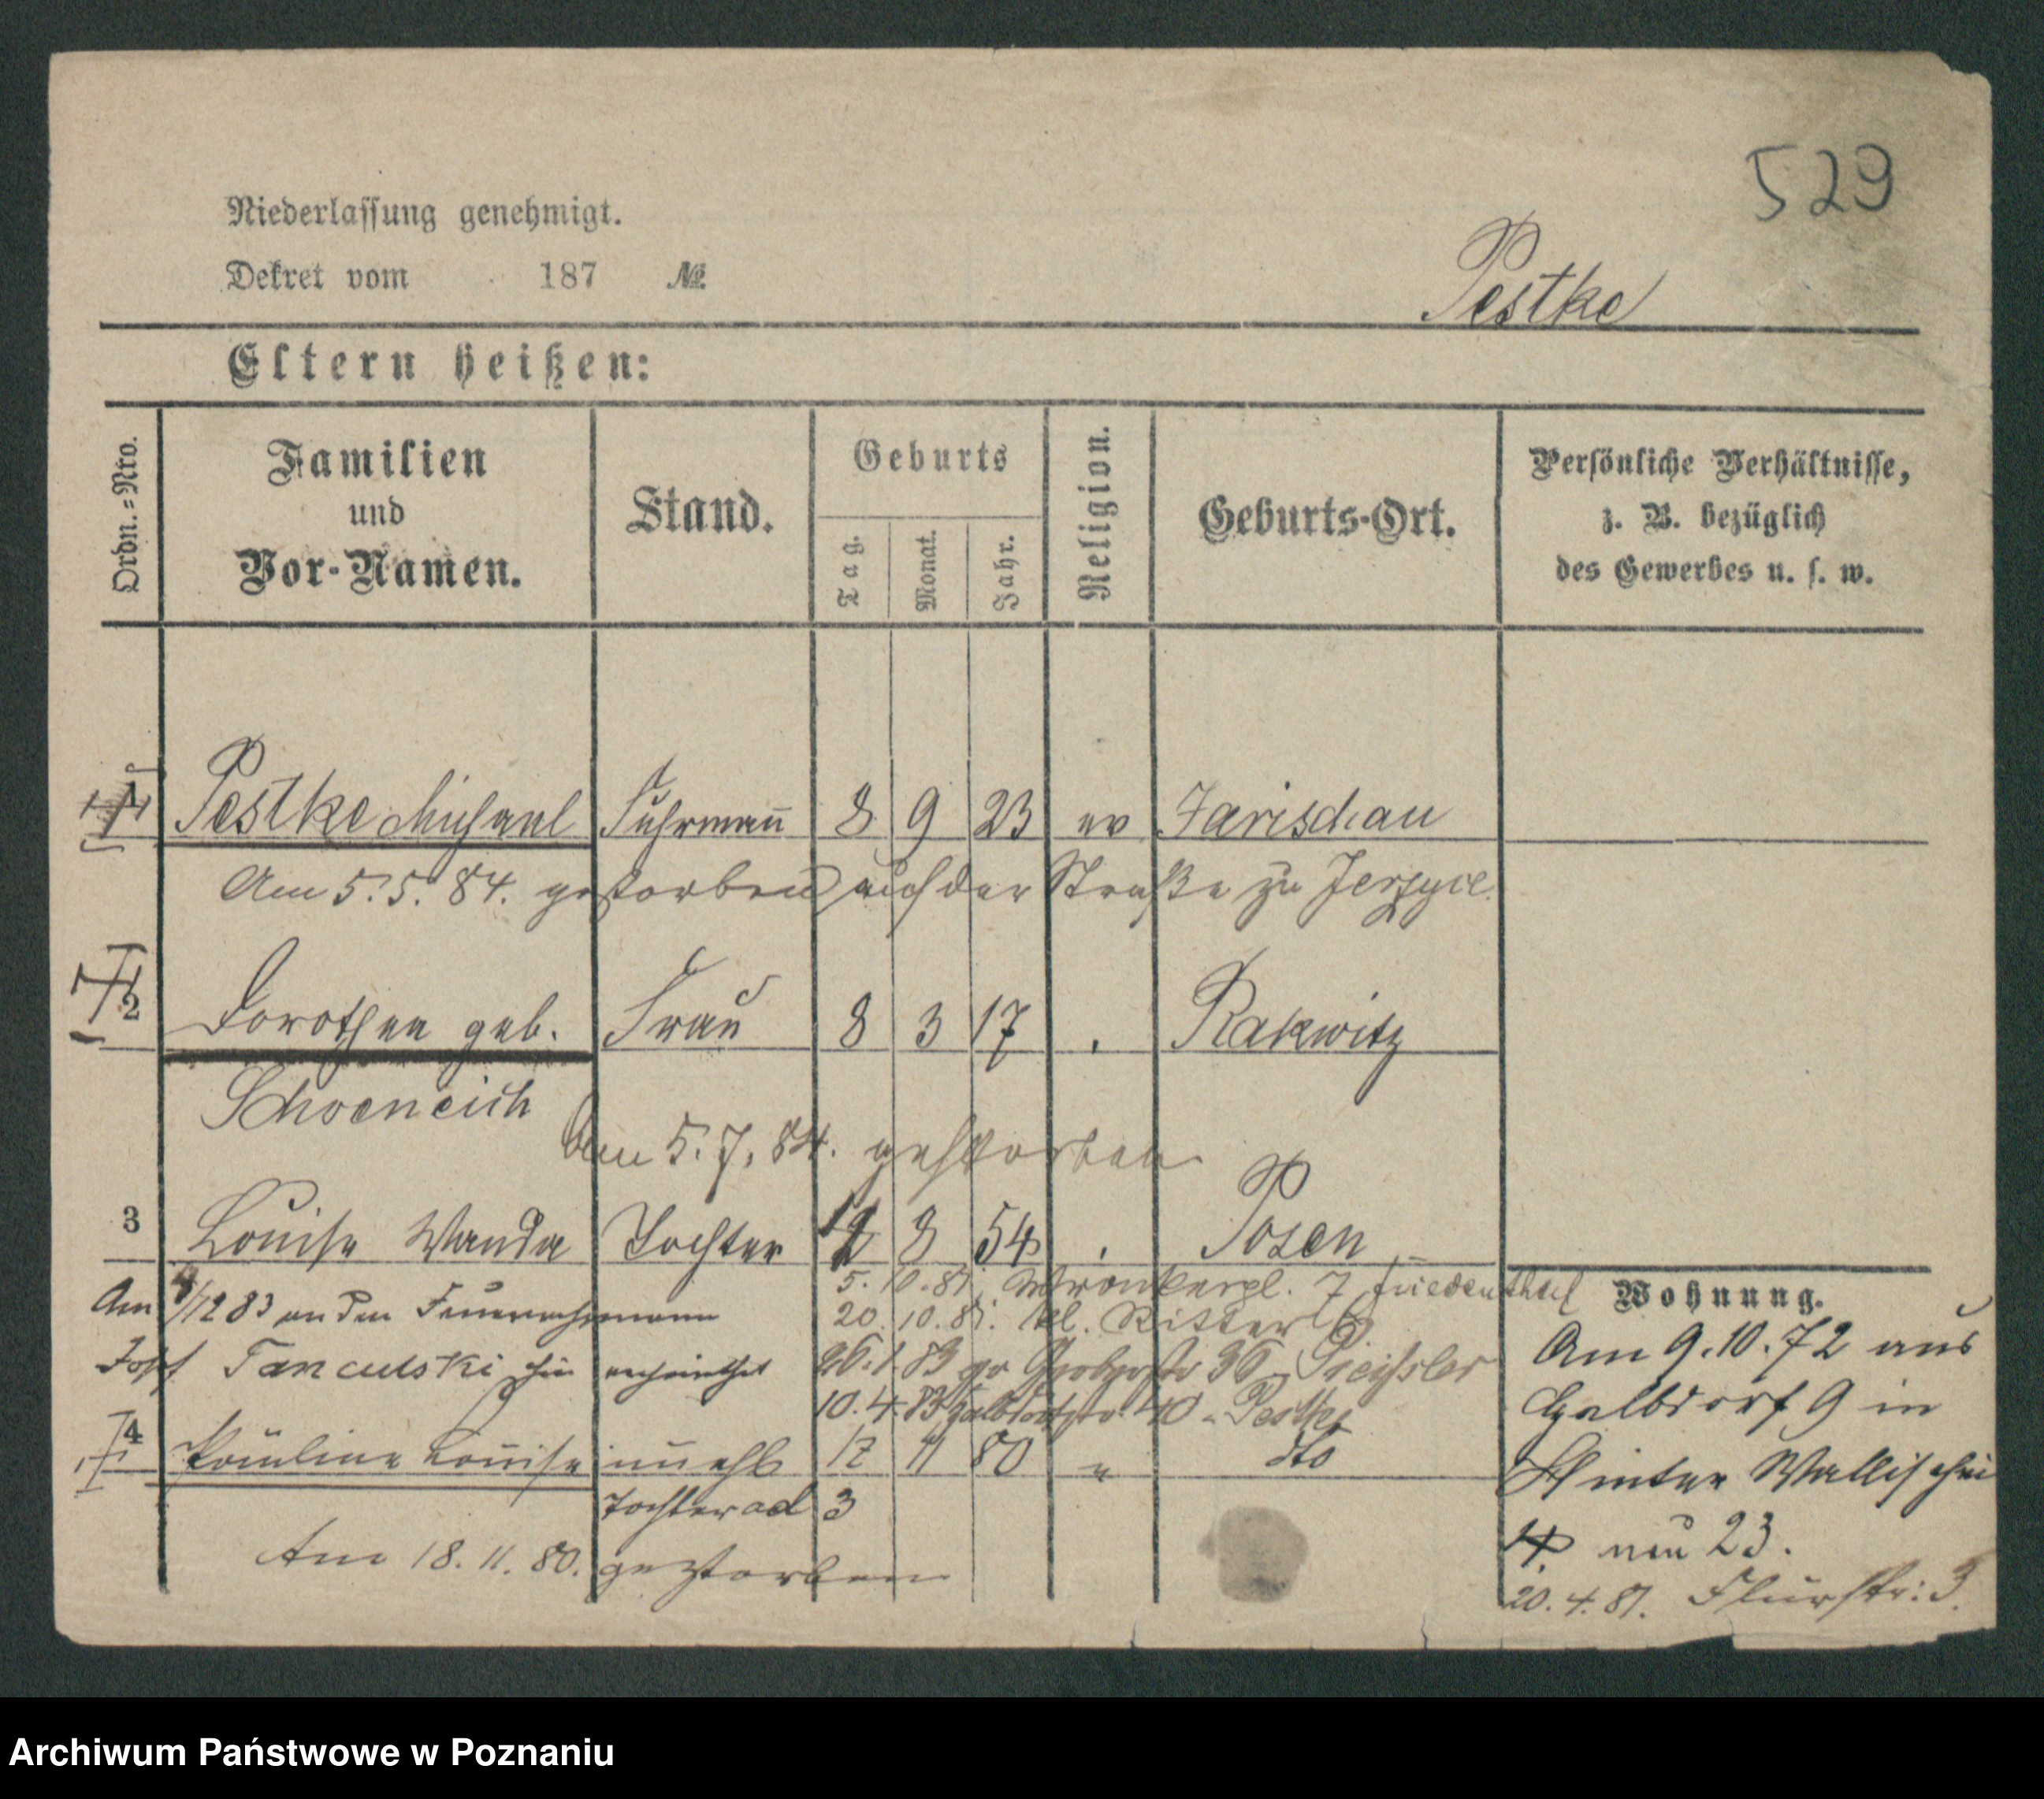 529
Niederlassung genehmigt.
Dekret vom 187 №.
Pestke
Eltern heißen:
Ordn.=Nro.
Familien
und
Vor-Namen.
Stand.
Geburts
Tag.
Monat.
Jahr.
Religion.
Geburts-Ort.
Persönliche Verhältnisse,
z. B. bezüglich
des Gewerbes u. s. w.
1 Pestke Michael Fuhrmann̅ 8 9 23 ev Jarischau
Am 5.5.84. gestorben auf der Straße zu Jerzyce.
2 Dorothea geb. Frau 8 3 17 . Rakwitz
Schoeneich
Am 5.7.84. gestorben
3 Louise Wanda Tochter 12 8 54 . Posen
5.10.81. Wronkerpl. 7 Friedenthal
20.10.81. kl. Ritter
Am /12 83 an den Feuerwehrmann
26.1.83 gr Gerberstr 36
Josef verheirathet
10.4.83 Halbdorfstr. 40 Pestke
4 Pauline Louise unehl 17 11 80 " dto
Tochter ad 3
Am 18.11.80. gestorben
Wohnung.
Am 9.10.72 aus
Halbdorf 9 in
Hinter Wallischei
4. neu 23.
20.4.81. Flurstr: 3.
Archiwum Państwowe w Poznaniu